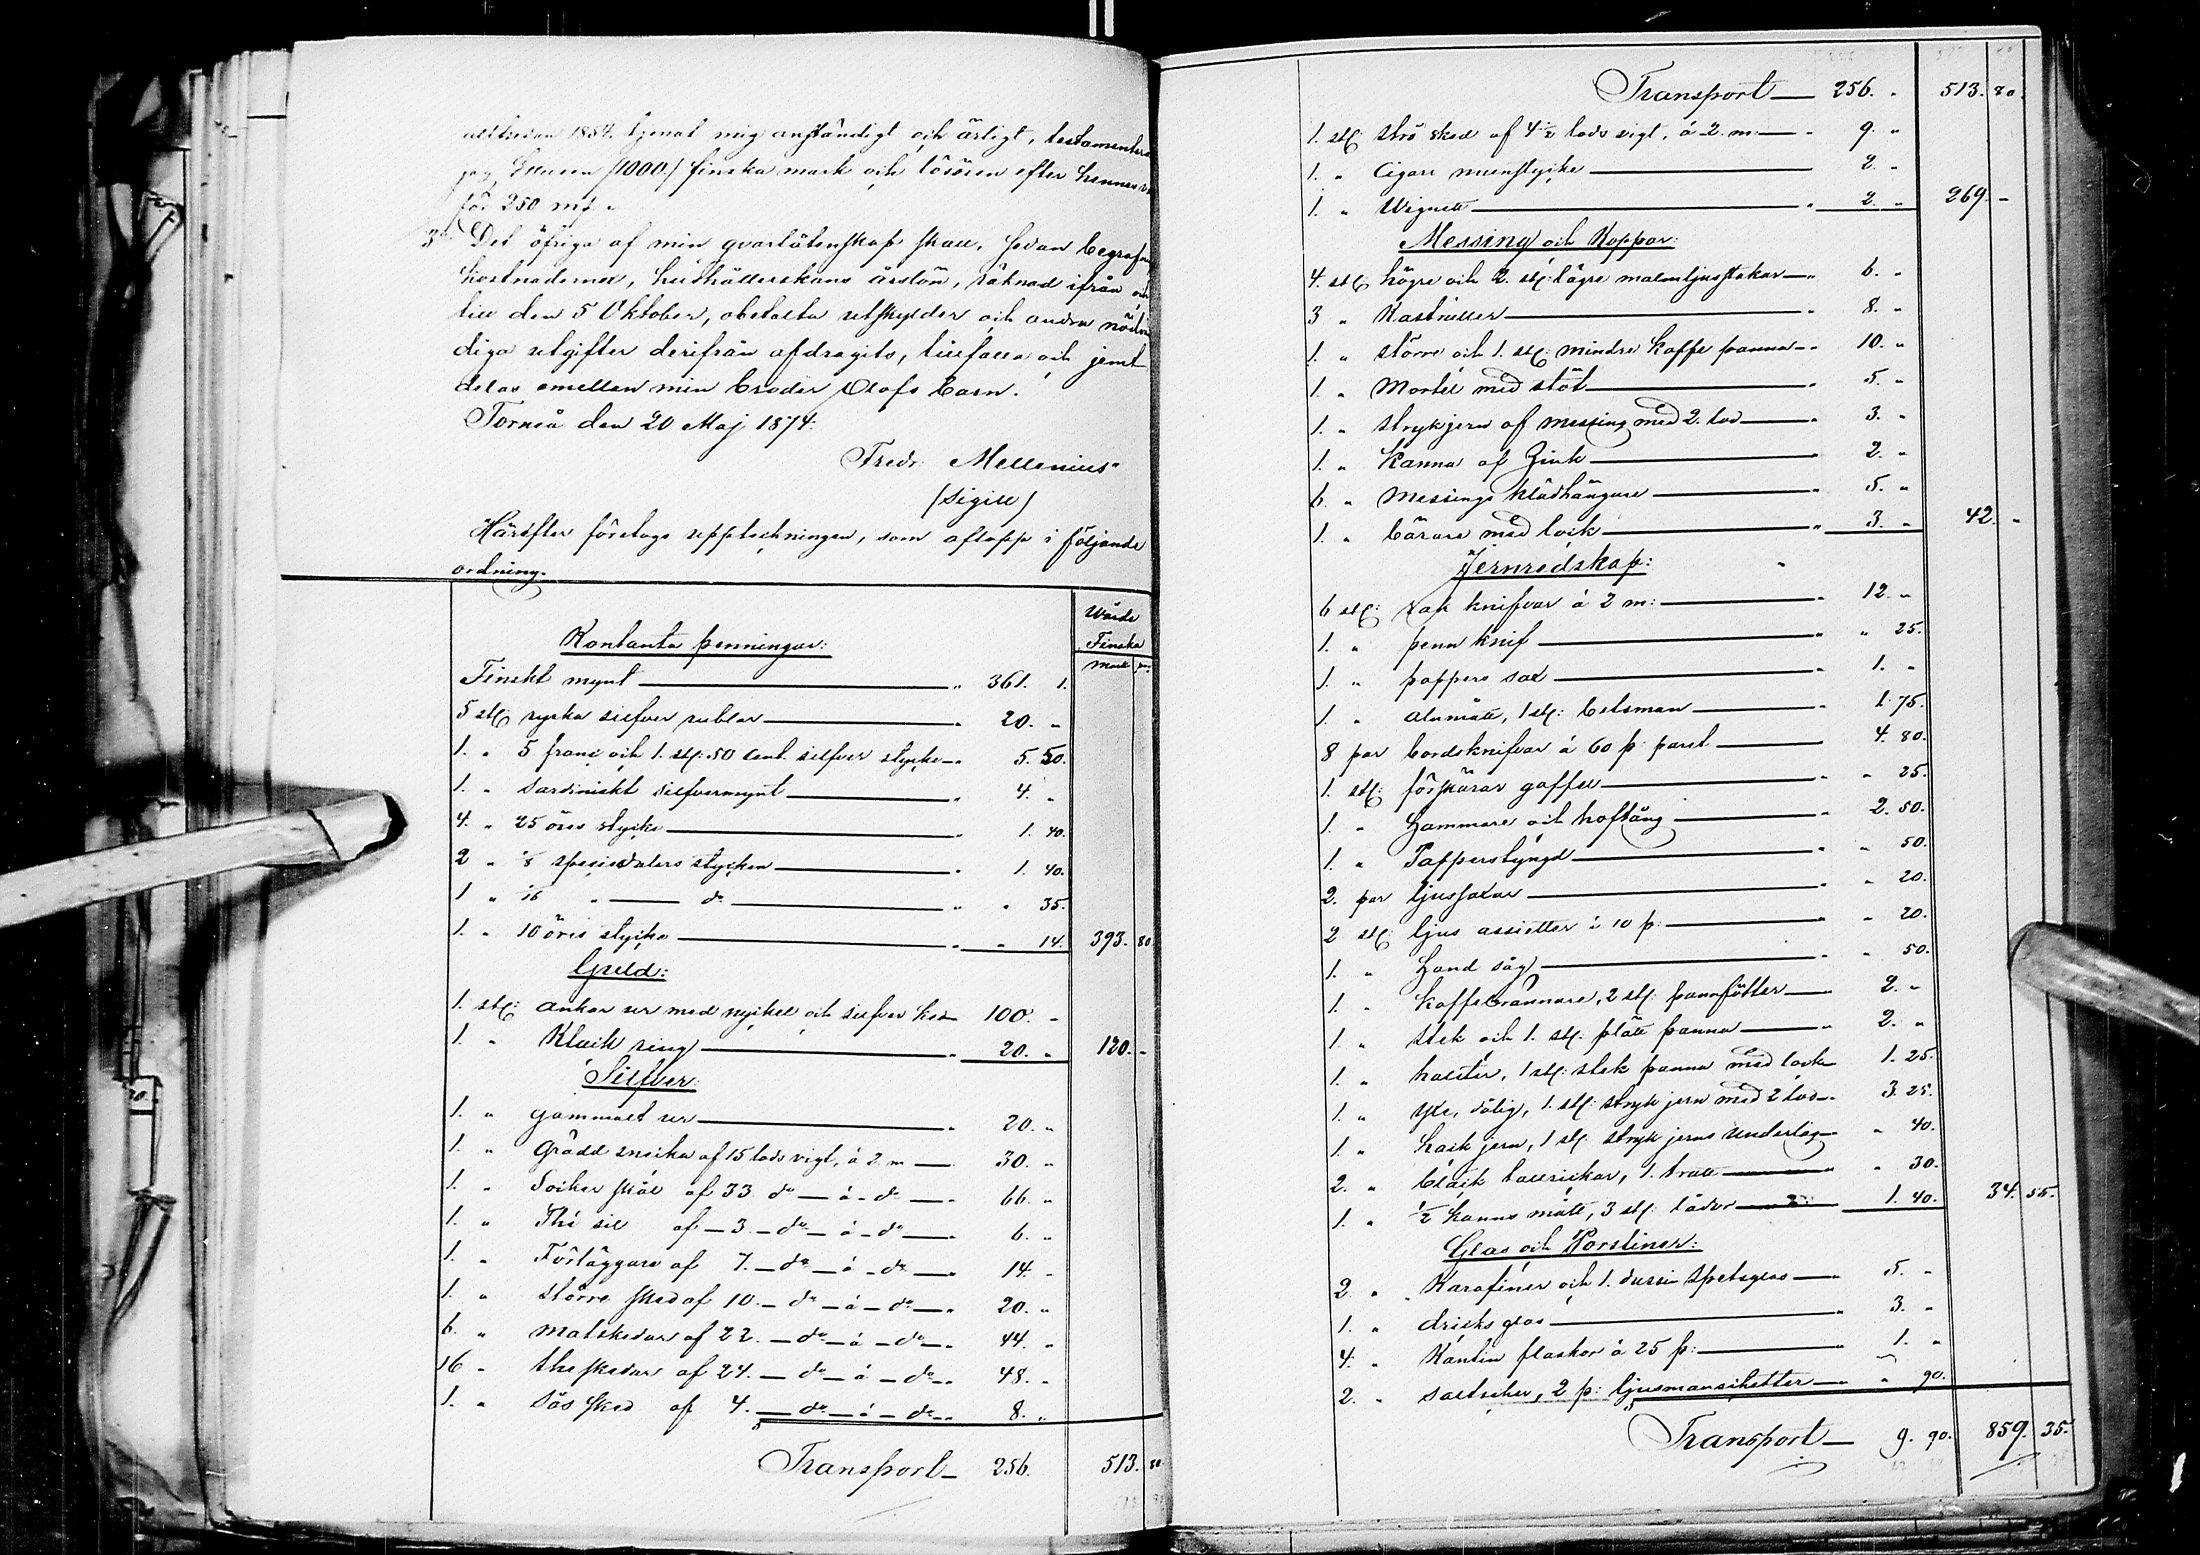 alltsedan 1854 tjenat mig anständigt och ärligt, testamenterar
jag Ettusen (1000) finska mark och lösören efter hennes val
för 250 m/f.
3o. Det öfriga af min qvarlåtenskap skall, sedan begrafnings
kostnaderna, hushållerskans årslön, räknad ifrån och
till den 5 Oktober, obetalta utskylder och andra nödvän
diga utgifter derifrån afdragits, tillfalla och jemt
delas emellan min broder Olofs barn.
Torneå den 20 Maj 1874.
Fredr. Mellenius
(sigill)
Härefter företogs uppteckningen, som aflopp i följande
ordning.
Wärde
Finska
mark pi.
Kontanta penningar:
Finskt mynt — " 361. 1.
5 st: ryska silfver rublar — " 20. "
1. " 5 franc och 1. st: 50 cent. silfver stycke — " 5. 50.
1. " sardiniskt silfvermynt — " 4. "
4. " 25 öres stycke — " 1. 40.
2 " 1/8 speciedalers stycken — " 1. 40.
1 " 1/16 " — do — " " 35.
1. " 10 öres stycke — " " 14. 393. 80
Guld:
1. st: ankar ur med nyckel och silfver ked — 100. "
1. " Klack ring — " 20. " 120. "
Silfver:
1. " gammalt ur — " 20. "
1. " Grädd snicka af 15 lods vigt, á 2 m — 30. "
1. " Socker skål af 33 do — á — do — " 66. "
1. " Thé sil af — 3 — do — á — do — " 6. "
1. " Förläggare af 7. — do — á — do — " 14. "
1. " större sked af 10. — do — á — do — " 20. "
6. " matskedar af 22. — do — á — do — " 44. "
16 " theskedar af 24. — do — á — do — " 48. "
1. " sås sked af 4. — do — á — do — " 8. "
Transport — 256. 513. 80
Transport — 256. " 513. 80.
1. st: strö sked af 4 1/2 lods vigt, á 2 m. — " 9. "
1. " Cigarr munstycke — 2. "
1. " Wignett — " 2. " 269. "
Messing och Koppar:
4. st: högre och 2. st: lägre malmljusstakar — " 6. "
3 " Kastruller — " 8. "
1. " större och 1. st: mindre kaffe panna — " 10. "
1. " Mortel med stöt — " 5. "
1. " strykjern af messing med 2. lod — " 3. "
1. " Kanna af Zink — " 2. "
6 " messings klädhängare — " 5. "
1. " bärare med lock — " 3. " 42. "
Jernredskap:
6 st: rak knifvar á 2 m: — " 12. "
1. " penn knif — " " 25.
1. " pappers sax — " 1. "
1. " alnmått, 1 st: betsman — " 1. 75.
8 par bordsknifvar á 60 p: paret — " 4. 80.
1. st: förskärar gaffel — " " 25.
1. " Hammare och hoftång — " 2. 50.
1. " Papperstyngd — " " 50.
2. par ljussaxar — " " 20.
2 st: ljus assietter á 10 p: — " " 20.
1. " Hand såg — " " 50.
1. " kaffebrännare, 2 st: pannfötter — " 2. "
1 " stek och 1. st: plätt panna — " 2. "
1. " halster, 1 st: stek panna med lock — 1. 25.
1. " yxe, dålig, 1. st: stryk jern med 2 lod — " 3. 25.
1. " hack jern, 1 st. stryk jerns underlag — " 40.
2. " bläck tallrickar, 1. tratt — " " 30.
1. " 1/2 kanns mått, 3 st: lådor — " 1. 40. 34. 55.
Glas och Porsliner:
2 " Karafiner och 1. dussin spetsglas — " 5. "
1. " dricks glas — " 3. "
4. " Kantin flaskor á 25 p: — " 1. "
2. " saltseker, 2 p: ljusmanschetter — " " 90.
Transport — 9. 90. 859. 35.